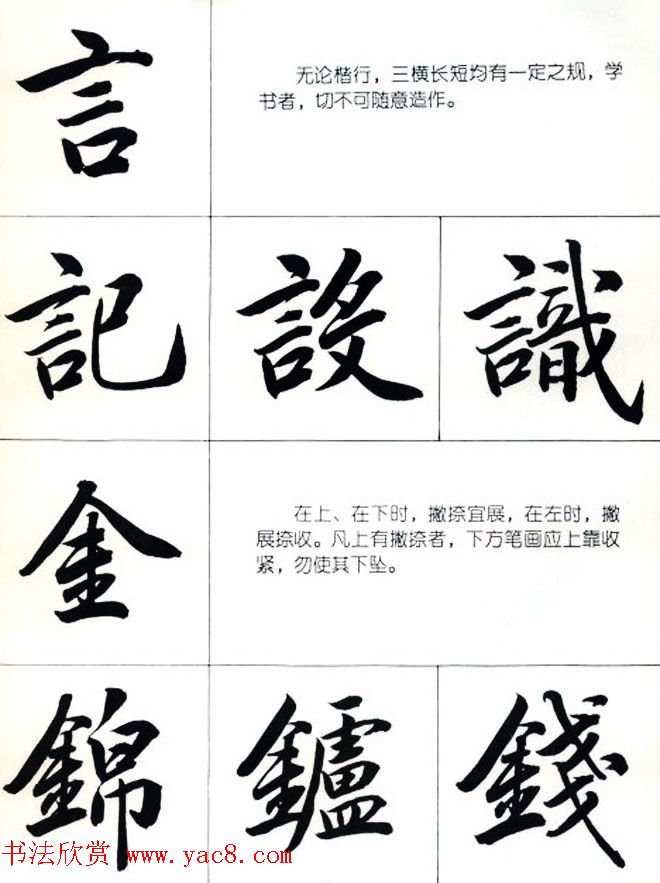 言
无论楷行，三横长短均有一定之规，学
书者，切不可随意造作。
記 設 識
金
在上、在下时，撇捺宜展，在左时，撇
展捺收。凡上有撇捺者，下方笔画应上靠收
紧，勿使其下坠。
錦 鑪 錢
书法欣赏 www.yac8.com